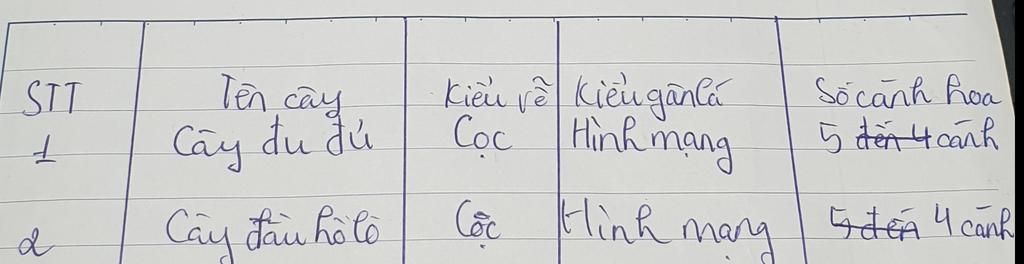 STT Tên cây Kiểu rề Kiểu gân lá Số cánh hoa
1 Cây đu đủ Cọc Hình mạng 5 đến 4 cánh
2 Cây đầu hôlô Cọc Hình mạng 5 đến 4 cánh